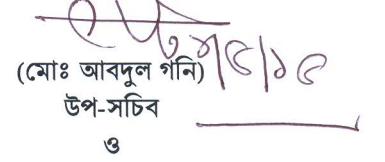 (মোঃ আবদুল গনি)
উপ-সচিব
ও